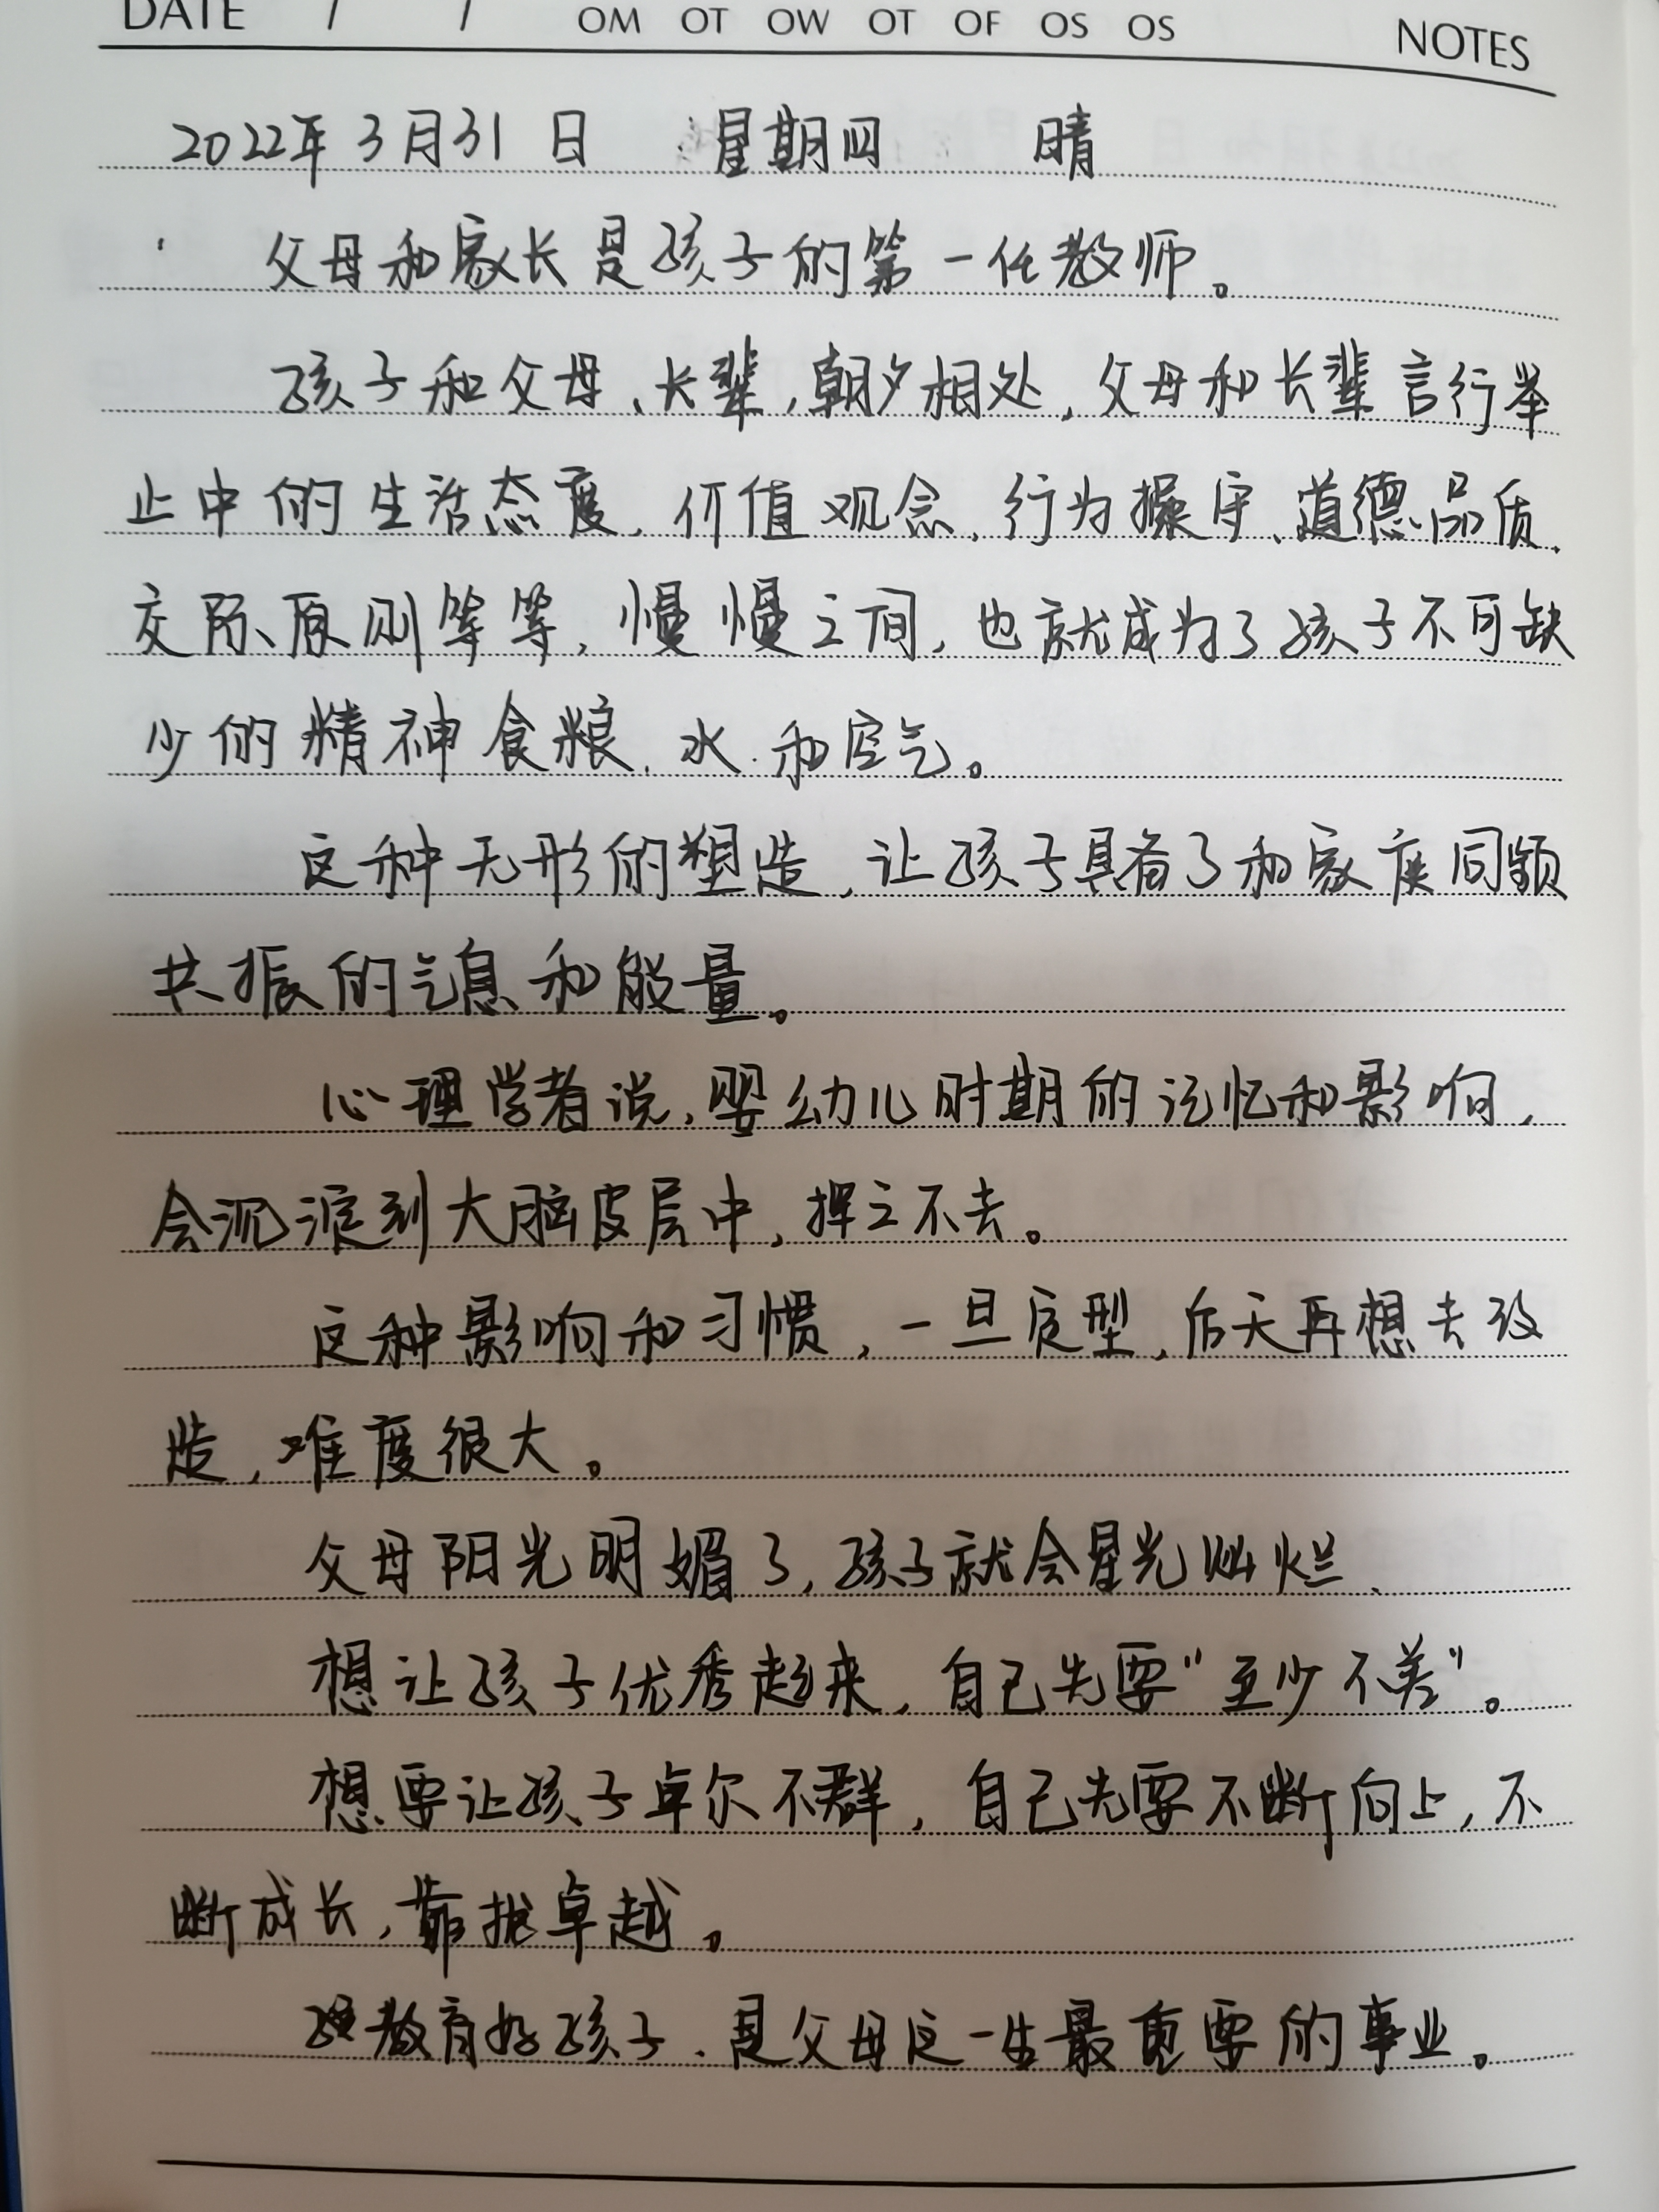 DATE / / OM OT OW OT OF OS OS NOTES
2022年3月31日 星期四 晴
父母和家长是孩子的第一任教师。
孩子和父母、长辈,朝夕相处,父母和长辈言行举
止中的生活态度,价值观念,行为操守、道德品质、
交际、原则等等,慢慢之间,也就成为了孩子不可缺
少的精神食粮、水和空气。
这种无形的塑造,让孩子具备了和家庭同频
共振的气息和能量。
心理学者说,婴幼儿时期的记忆和影响,
会沉淀到大脑皮层中,挥之不去。
这种影响和习惯,一旦定型,后天再想去改
造,难度很大。
父母阳光明媚了,孩子就会星光灿烂、
想让孩子优秀起来,自己先要"至少不差"。
想要让孩子卓尔不群,自己先要不断向上,不
断成长,靠拢卓越。
教育好孩子、是父母这一生最重要的事业。